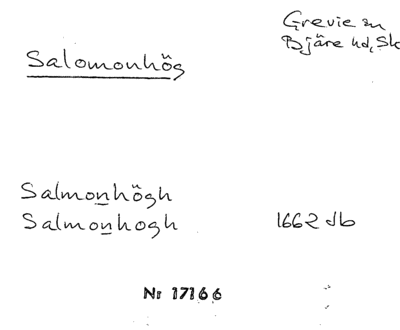 Grevie sn
Bjäre hd, Sk
Salomonhög
Salmonhögh
Salmonhogh 1662 Jb
Nr 17166